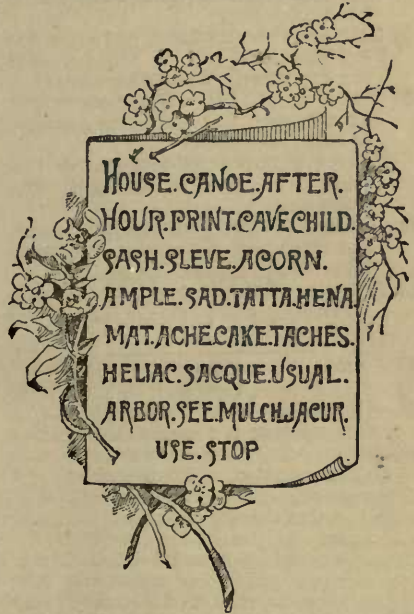 HOUSE.CANOE.AFTER.
HOUR.PRINT.CAVECHILD.
SASH.SLEVE.ACORN.
AMPLE.SAD.TATTA.HENA.
MAT.ACHE.CAKE.TACHES.
HELIAC.SACQUE.USUAL.
ARBOR.SEE.MULCH.JACUR.
USE.STOP